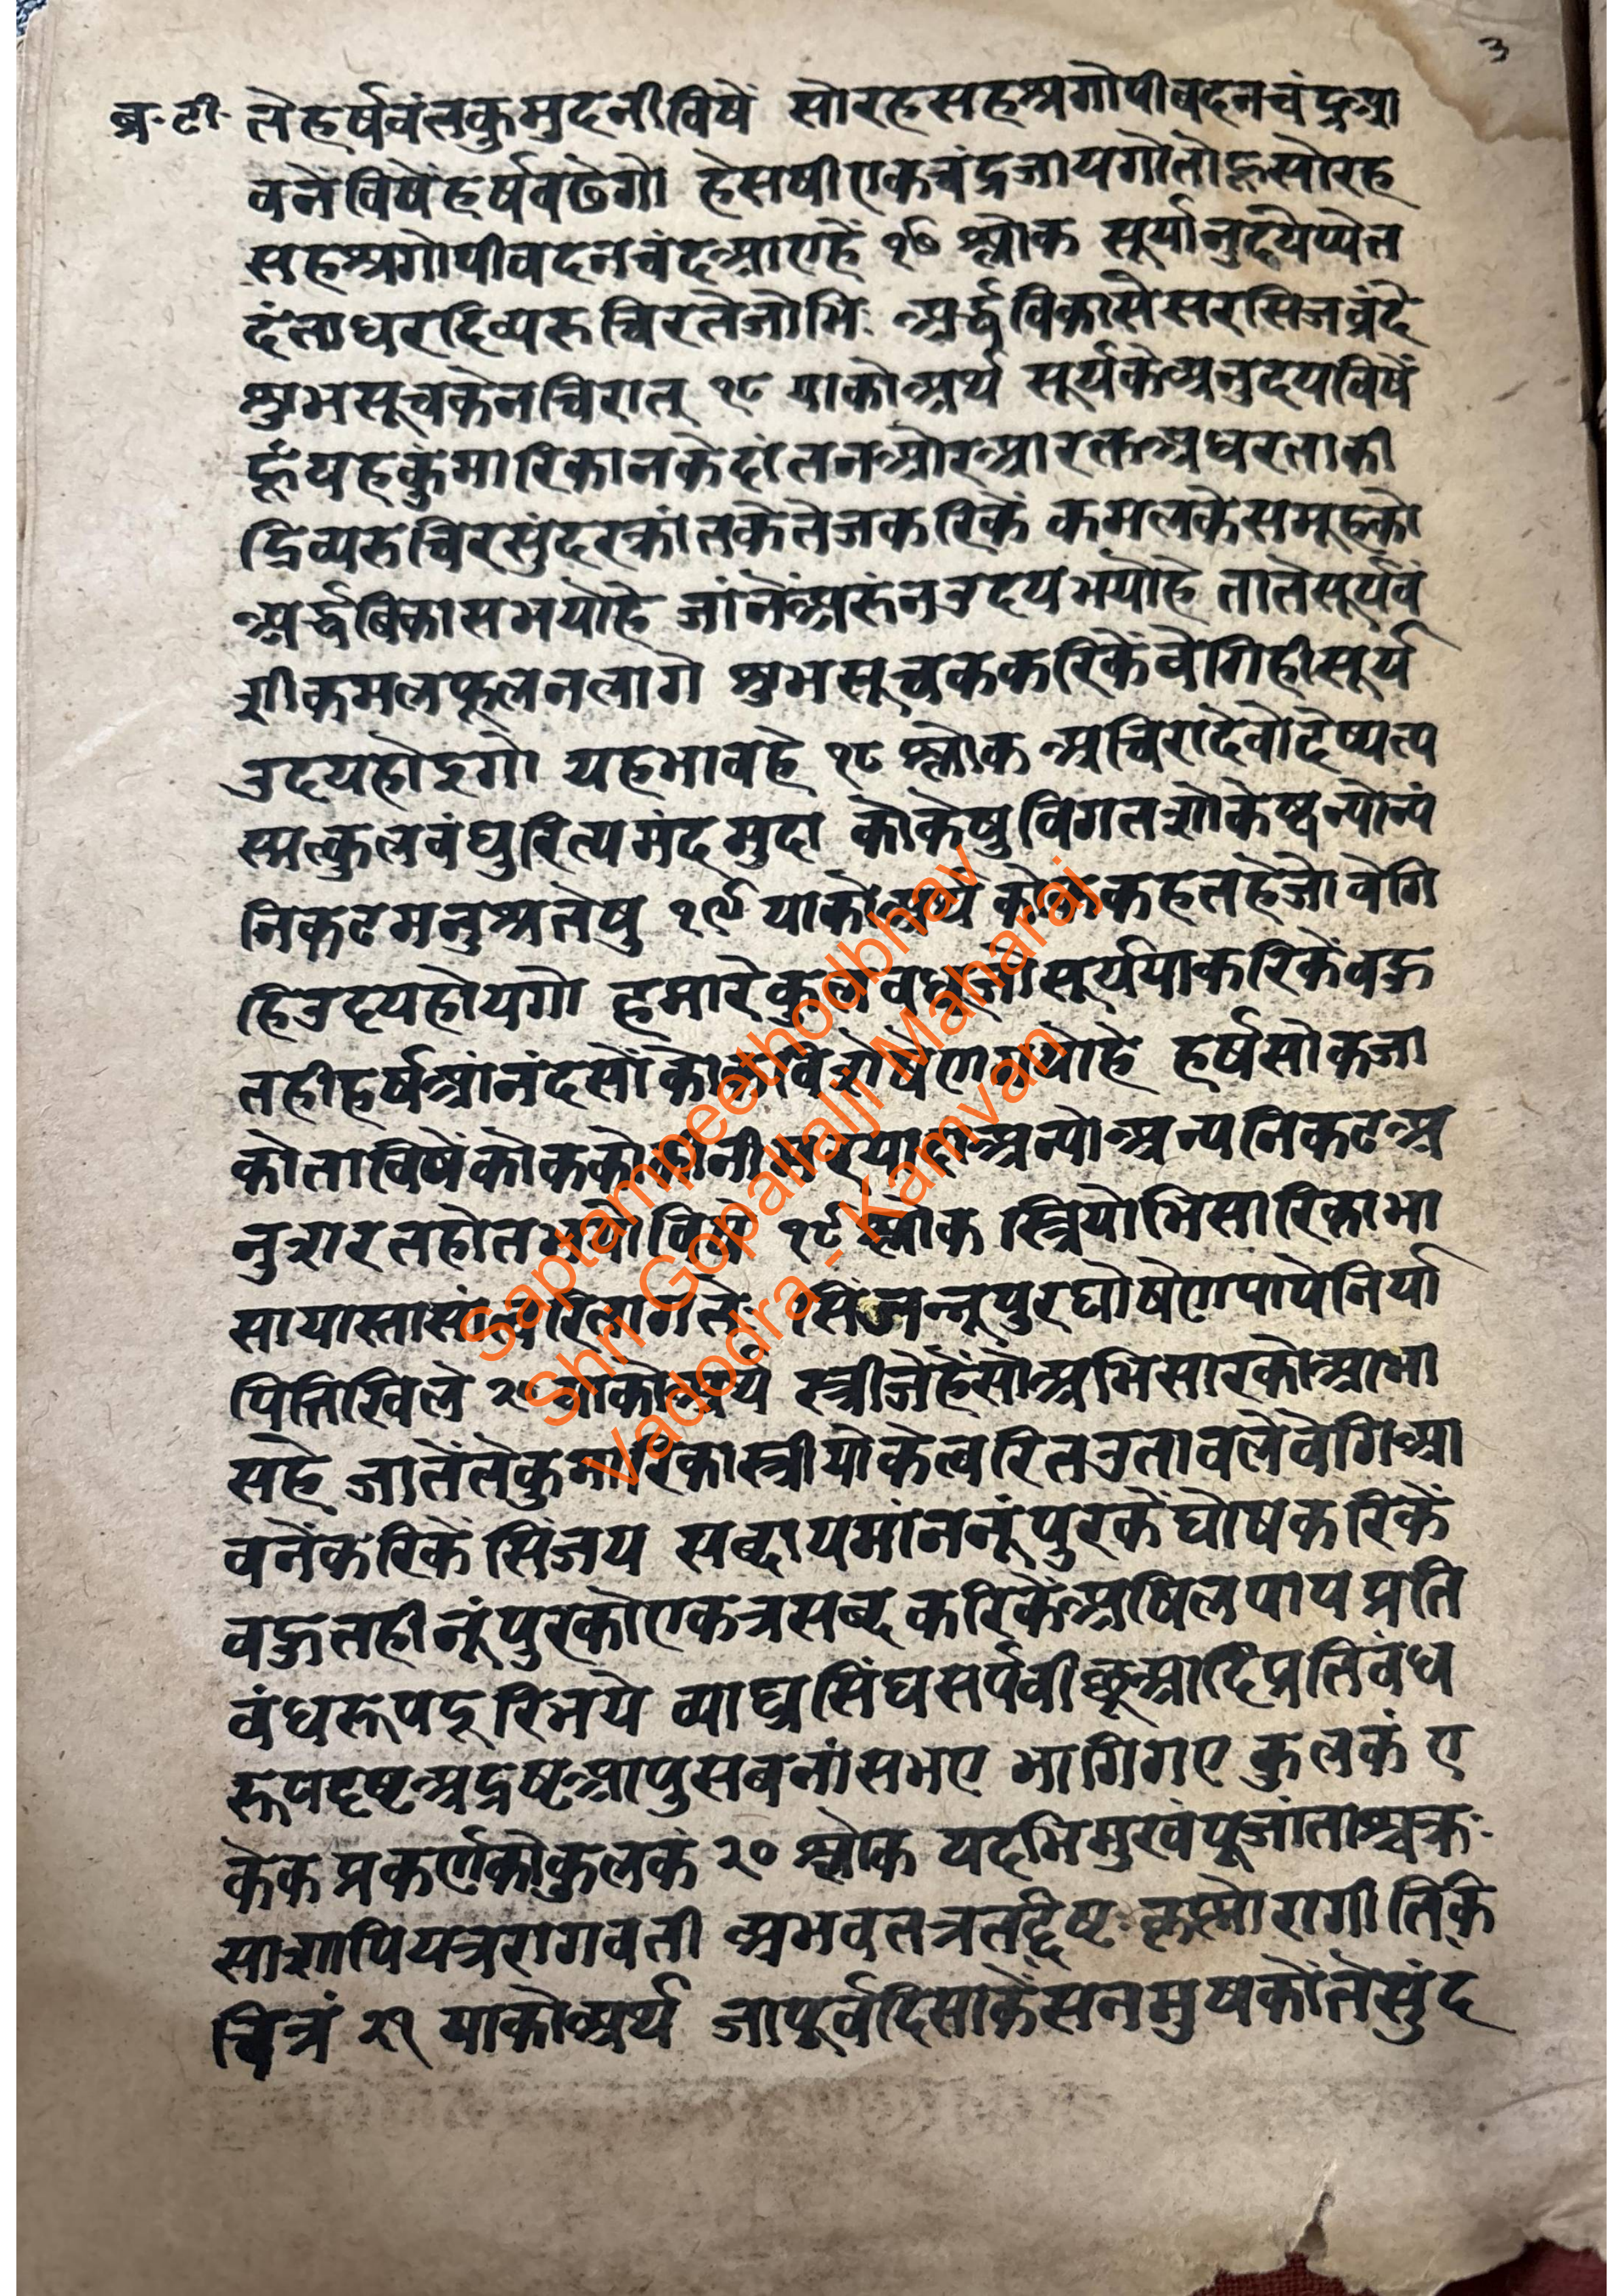 ३
ब्र·टी· ते हर्षवंत कुमुदनी विषें सोरह सहश्र गोपी वदन चंद्र आ
वने विषें हर्ष बढेगो हे सषी एक चंद्र जायगो तो हू सोरह
सहश्र गोपी वदन चंद आए हें १७ श्लोक सूर्यानुदयेप्येत
दंताधर दिव्य रुचिर तेजोभिः अर्द्ध विकासे सरसिज वृंदे
शुभ सूचकेन चिरात् १८ याको अर्थ सूर्य के अनुदय विषें
हूं यह कुंमारिकान के दांतन और आरक्त अधर ताकी
दिव्य रुचिर सुंदर कांत के तेज करिकें कमल के समूह को
अर्द्ध बिकास भयो हे जांनें अरुंन उदय भयो हे तातें सूर्य वं
शी कमल फूलन लागे शुभ सूचक करिकें वेगि ही सूर्य
उदय होइगो यह भाव हे १८ श्लोक अचिरादेवोदेष्यत्य
स्मत्कुल बंधुरित्यमंद मुदा कोकेषु विगत शोकेष्वन्योन्यं
निकटमनुश्रतेषु १९ याको अर्थ कोक कहत हे जो वेगि
हि उदय होयगो हमारे कुल बंधु जो सूर्य या करिकें बहु
त ही हर्ष आंनंद सों कोक विशेषेण भयो हे हर्ष सोक जा
को ता विषें कोक को अन्यो अन्य निकट अ
नुशरत होत १९ श्लोक स्त्रियोभिसारिकाभा
सायास्तासां त्वरितागतेः सिंजन्नूपुर घोषेण पापे निर्या
पितेखिले २० याको अर्थ स्त्री जे हें सो अभिसारको आभा
स हे जातें ते कुमारिका स्त्रीयो के त्वरित उतावले वेगि आ
वनें करिकें सिंजय सब्दायमांन नूंपुर कें घोष करिकें
बहुत ही नूंपुर को एकत्र सब्द करिकें अषिल पाप प्रति
बंध रूप दूरि भये व्याघ्र सिंघ सर्प वीछू आदि प्रतिबंध
रूप दृष्ट अद्रष्ट आपु सब नांस भए भागि गए कुलकं ए
केक प्रकर्ण को कुलकं २० श्लोक यदभिमुखं पूजां ताश्चक्रः
साशापि यत्र रागवती अभवत्तत्र तद्दिष्टः कृष्णो रागीति किं
चित्रं २१ याको अर्थ जा पूर्व दिसा कें सनमुष कों ते सुंद
Saptampeethodbhav
Shri Gopallalji Maharaj
Vadodra - Kamvan